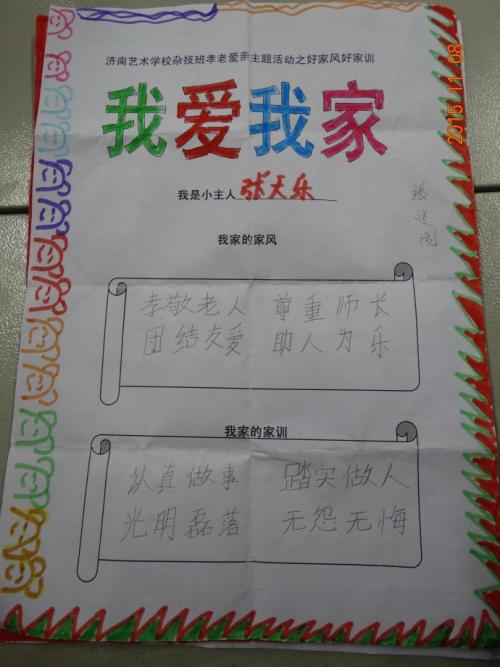 济南艺术学校杂技班孝老爱亲主题活动之好家风好家训
我爱我家
我是小主人 张天乐
我家的家风
孝敬老人 尊重师长
团结友爱 助人为乐
我家的家训
认真做事 踏实做人
光明磊落 无怨无悔
2015 11 08